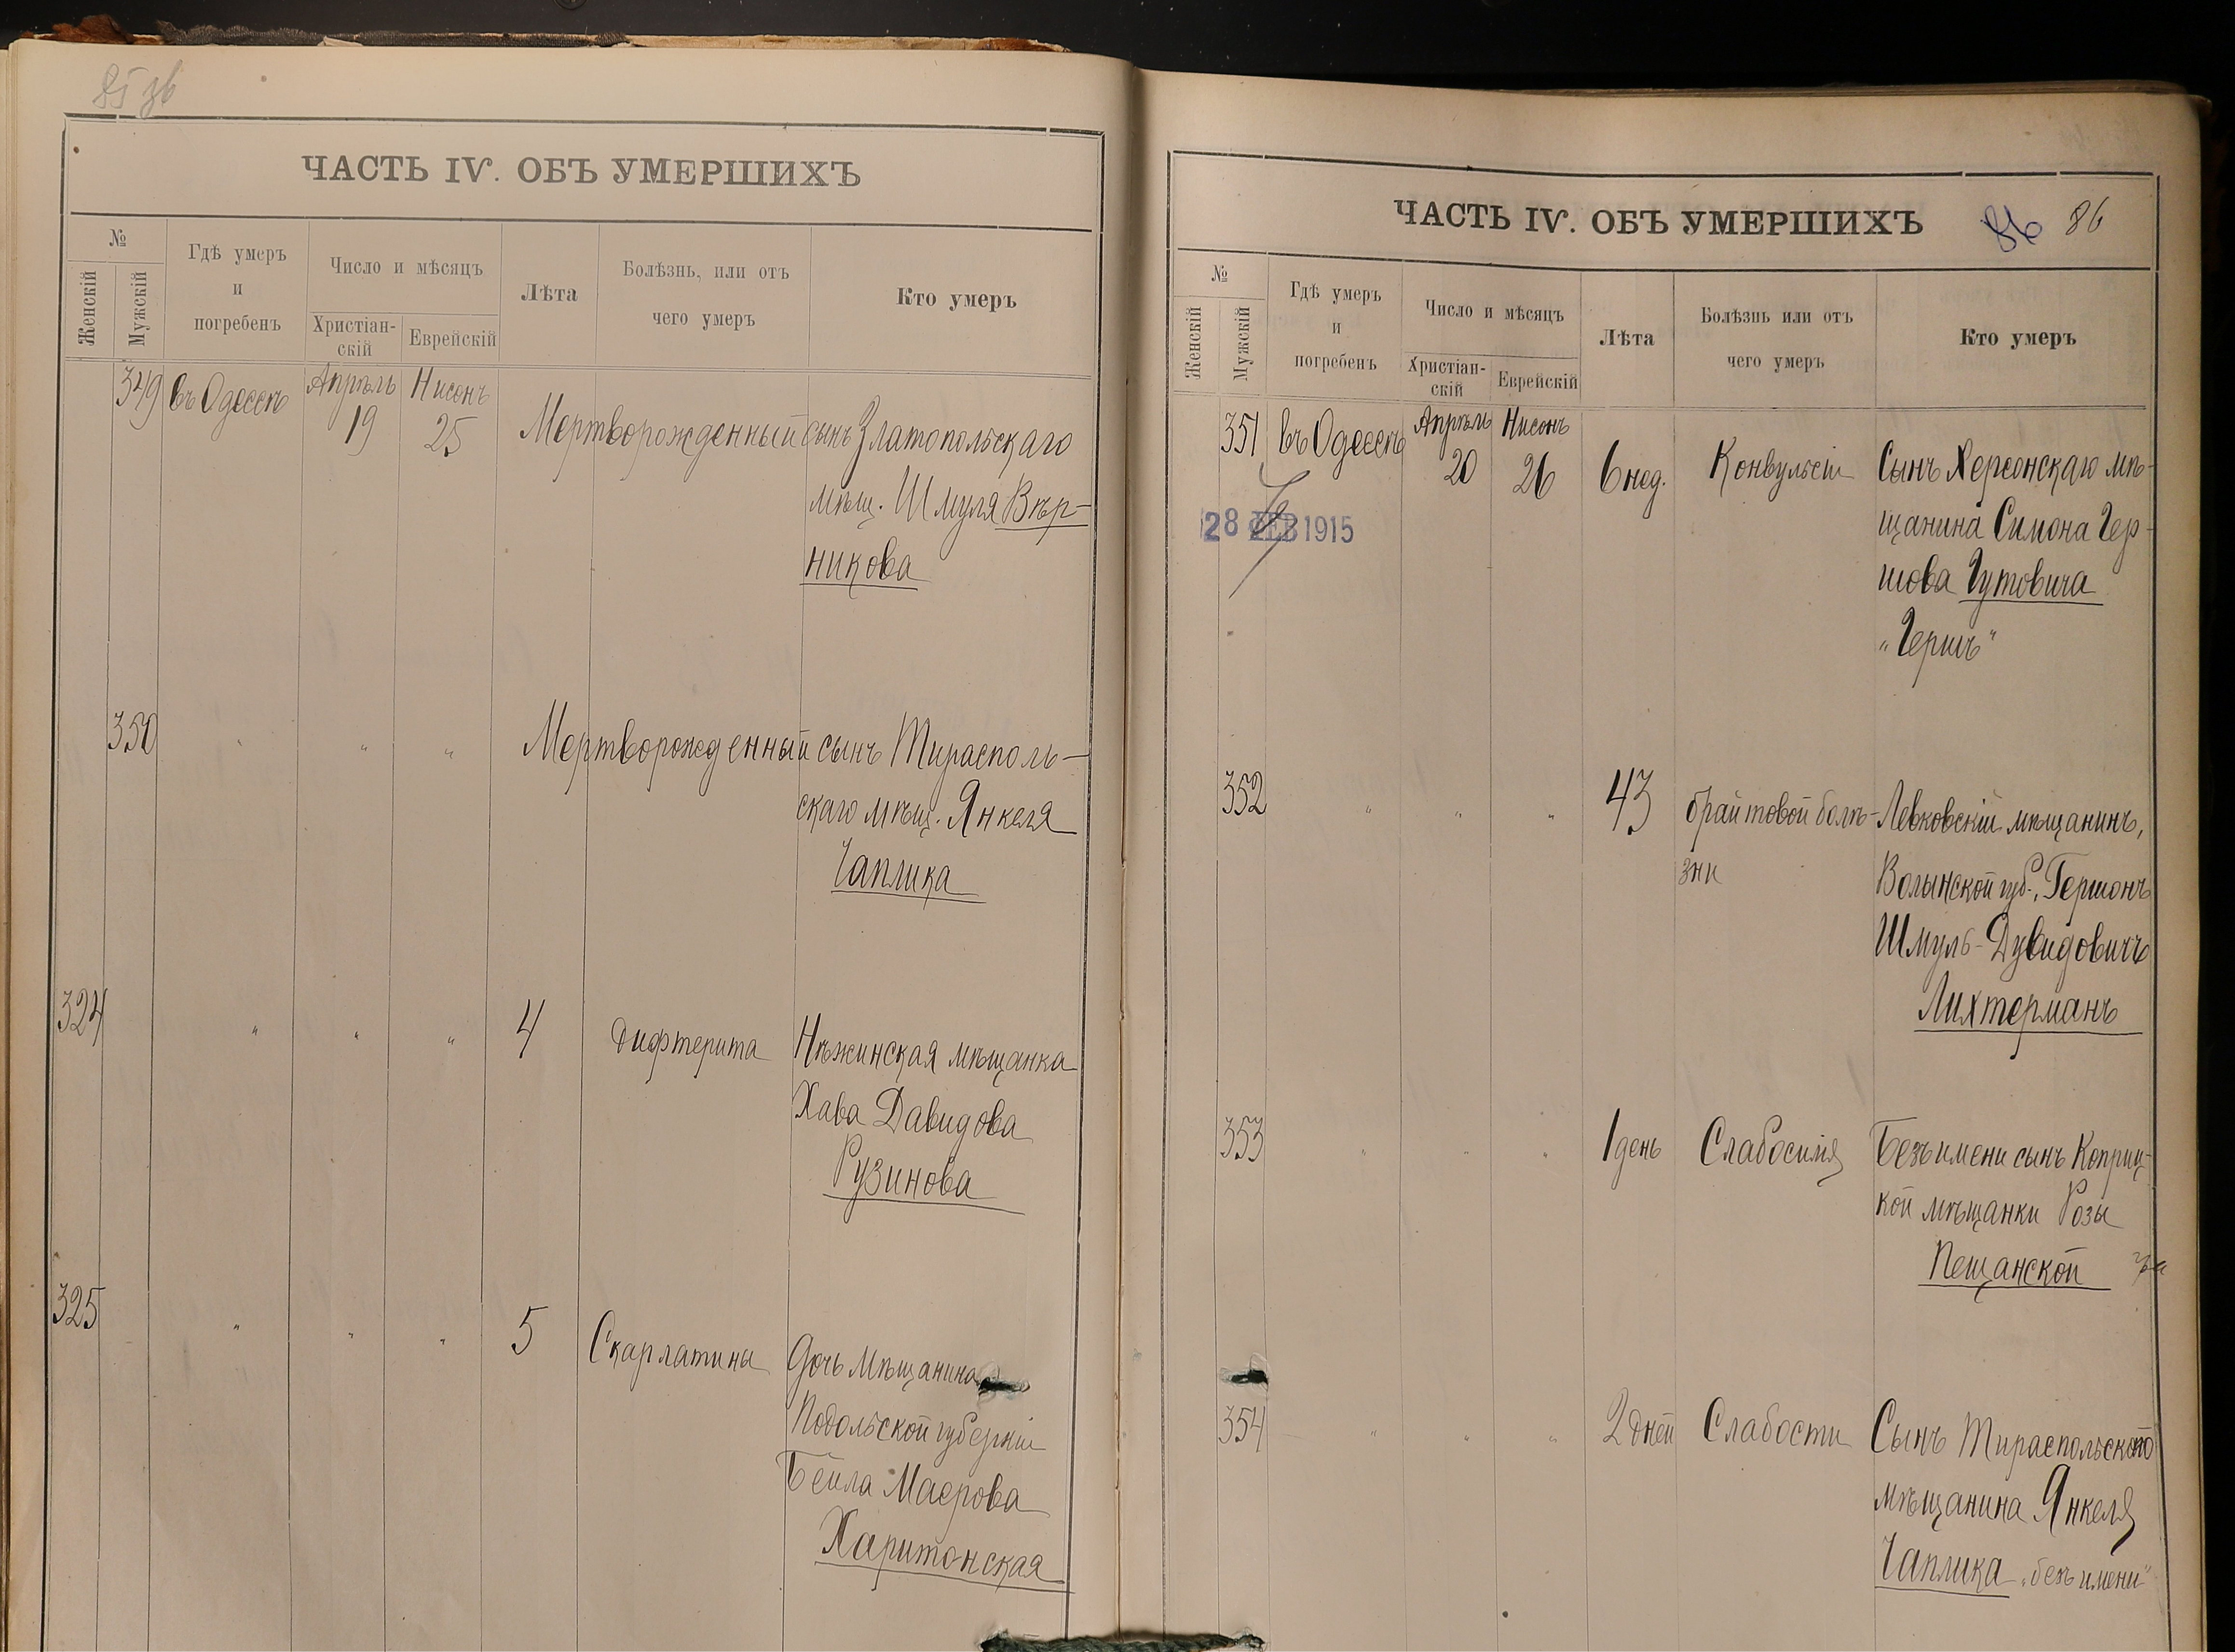 85 зв
ЧАСТЬ IV. ОБЪ УМЕРШИХЪ
№
Женскій
Мужскій
Гдѣ умеръ
и
погребенъ
Число и мѣсяцъ
Христіан-
скій
Еврейскій
Лѣта
Болѣзнь, или отъ
чего умеръ
Кто умеръ
349 въ Одессѣ Апрѣль 19 Нисонъ 25 Мертворожденный сынъ Златопольскаго
мѣщ. Шмуля Вѣр-
никова
350 " " " Мертворожденный сынъ Тирасполь-
скаго мѣщ. Янкеля
Чаплика
324 " " " 4 Дифтерита Нѣжинская мѣщанка
Хава Давидова
Рузинова
325 " " " 5 Скарлатины Дочь мѣщанина
Подольской губерніи
Бейла Маерова
Харитонская
ЧАСТЬ IV. ОБЪ УМЕРШИХЪ 86 86
№
Женскій
Мужскій
Гдѣ умеръ
и
погребенъ
Число и мѣсяцъ
Христіан-
скій
Еврейскій
Лѣта
Болѣзнь или отъ
чего умеръ
Кто умеръ
351 въ Одессѣ Апрѣль 20 Нисонъ 26 6 нед. Конвульсіи Сынъ Херсонскаго мѣ-
щанина Симона Гер-
шова Гутовича
"Гершъ"
28 ФЕВ 1915
352 " " " 43 брайтовой болѣ- Левковскій мѣщанинъ,
зни Волынской губ., Гершонъ
Шмуль-Дувидовичъ
Лихтерманъ
353 " " " 1 день Слабосилія Безъ имени сынъ Коприц-
кой мѣщанки Розы
Пещанской
354 " " " 2 дней Слабости Сынъ Тираспольского
мѣщанина Янкеля
Чаплика "безъ имени"